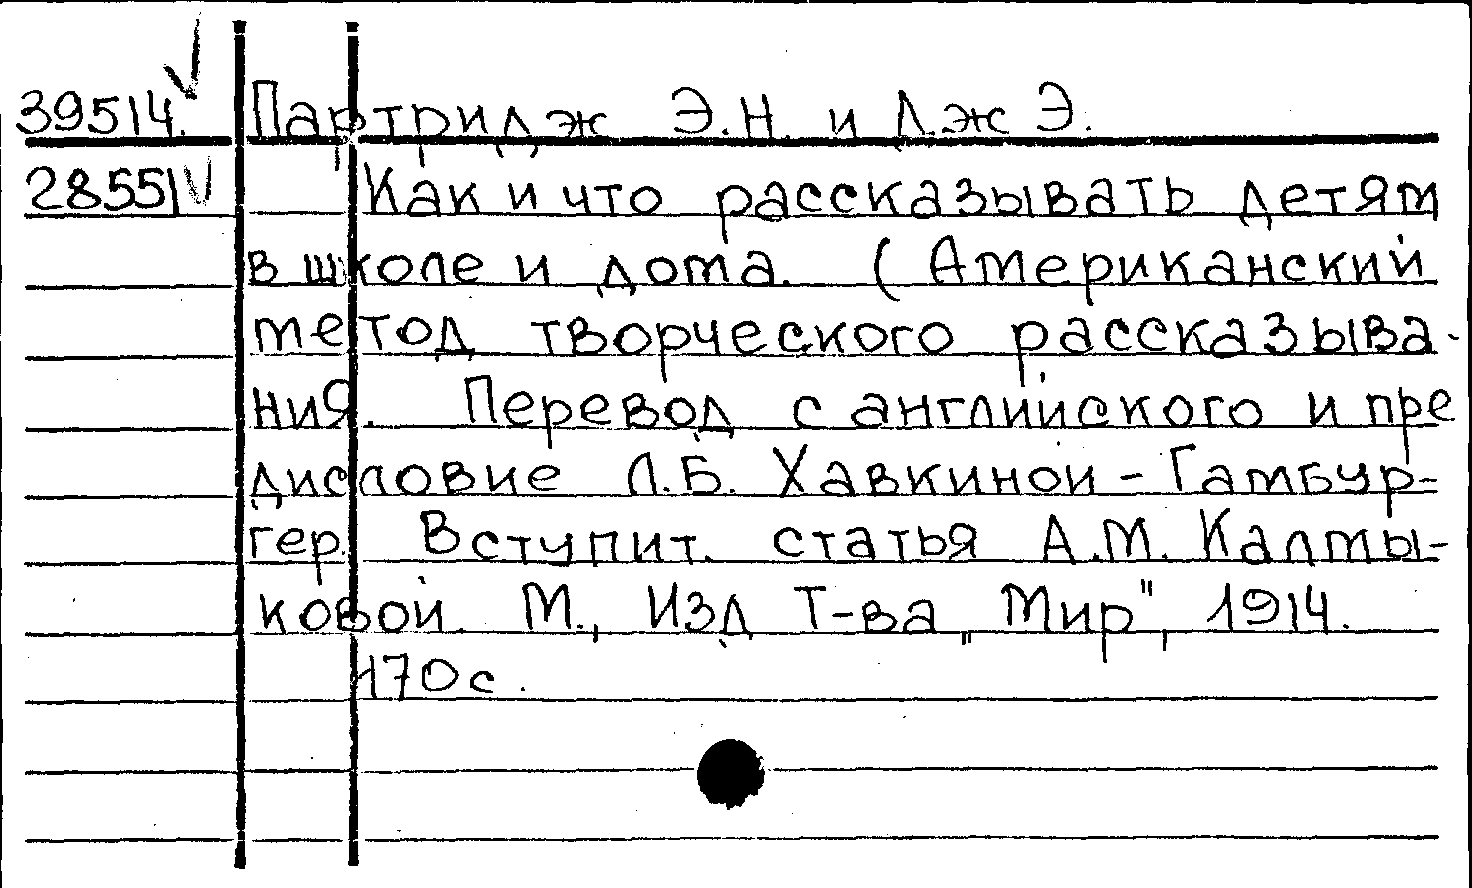 39514. Партридж Э.Н. и Дж Э.
28551 Как и что рассказывать детям
в школе и дома. (Американский
метод творческого рассказыва-
ния. Перевод с английского и пре
дисловие Л.Б. Хавкиной - Гамбур-
гер. Вступит. статья А.М. Калмы-
ковой. М., Изд Т-ва „Мир", 1914.
170с.